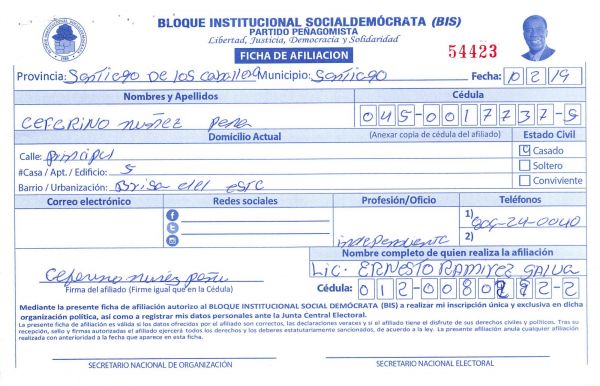 BLOQUE INSTITUCIONAL SOCIALDEMÓCRATA (BIS)
PARTIDO PEÑAGOMISTA
Libertad, Justicia, Democracia y Solidaridad
FICHA DE AFILIACION
54423
Provincia: Santiago De Los Caballero Municipio: Santiago Fecha: 10 2 19
Nombres y Apellidos Cédula
CEFERINO nuñez pena 045-0017737-5
Domicilio Actual (Anexar copia de cédula del afiliado) Estado Civil
Calle: principal Casado
#Casa / Apt. / Edificio: 5 Soltero
Barrio / Urbanización: Brisa del este Conviviente
Correo electrónico Redes sociales Profesión/Oficio Teléfonos
1) 809-24-0040
independiente 2)
Nombre completo de quien realiza la afiliación
Ceferino nuñez peña Lic. ERNESTO RAMIREZ
Firma del afiliado (Firme igual que en la Cédula) Cédula: 012-008
Mediante la presente ficha de afiliación autorizo al BLOQUE INSTITUCIONAL SOCIAL DEMÓCRATA (BIS) a realizar mi inscripción única y exclusiva en dicha
organización política, así como a registrar mis datos personales ante la Junta Central Electoral.
La presente ficha de afiliación es válida si los datos ofrecidos por el afiliado son correctos, las declaraciones veraces y si el afiliado tiene el disfrute de sus derechos civiles y políticos. Tras su
recepción, sello y firmas autorizadas el afiliado ejercerá todos los derechos y los deberes estatutariamente sancionados, de acuerdo a la ley. La presente afiliación anula cualquier afiliación
realizada con anterioridad a la fecha que aparece en esta ficha.
SECRETARIO NACIONAL DE ORGANIZACIÓN SECRETARIO NACIONAL ELECTORAL